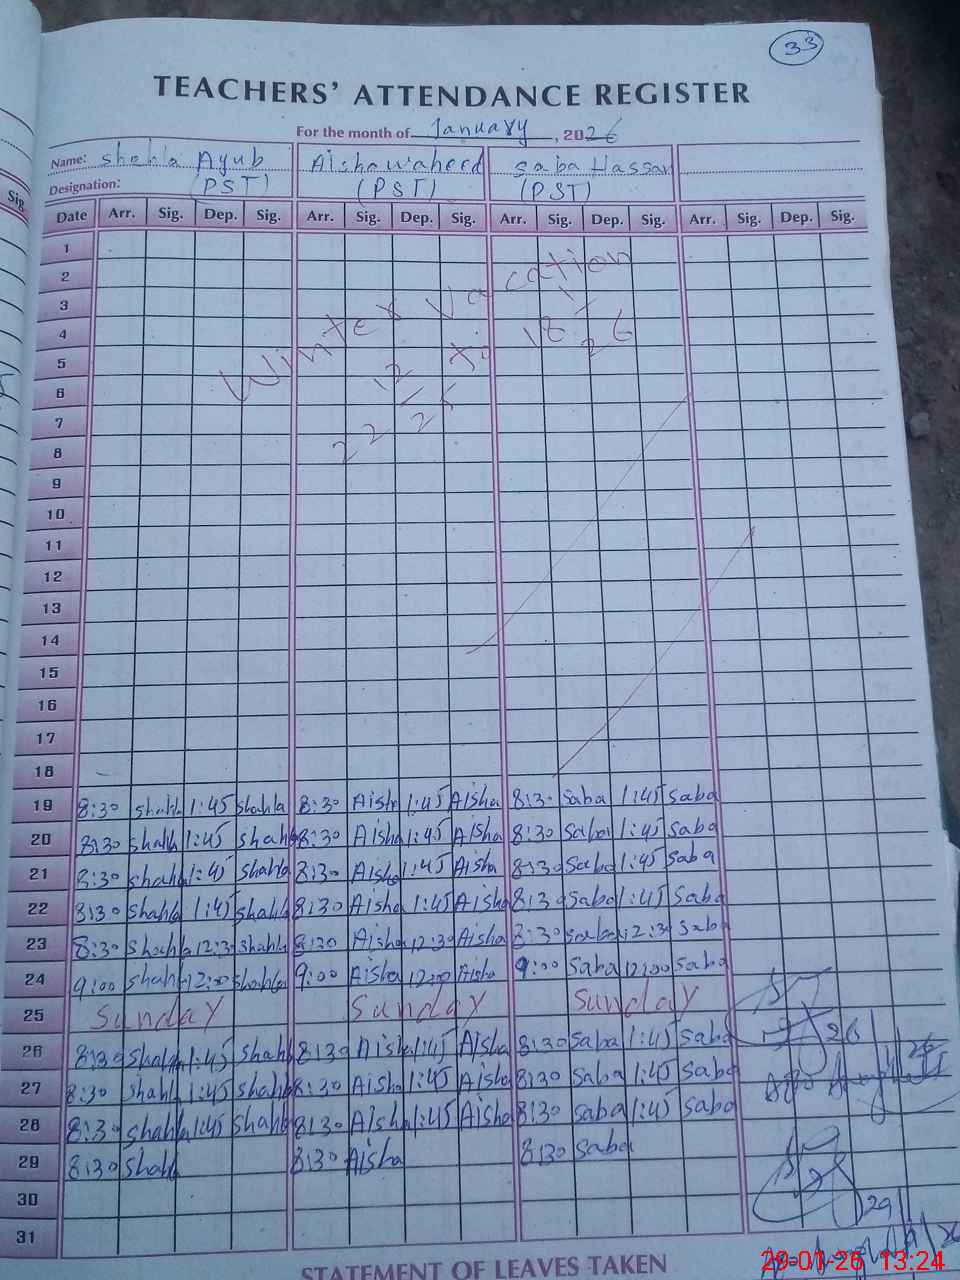 33
TEACHERS' ATTENDANCE REGISTER
For the month of January, 2026
Name: Shehla Ayub Aisha waheed Saba Hassan
Designation: (PST) (PST) (PST)
Sig.
Date Arr. Sig. Dep. Sig. Arr. Sig. Dep. Sig. Arr. Sig. Dep. Sig. Arr. Sig. Dep. Sig.
1
2
3
4
5
6
7
8
9
10
11
12
13
14
15
16
17
18
Winter Vacation
22/12/25 to 18/1/26
19 8:30 Shahla 1:45 Shahla 8:30 Aisha 1:45 Aisha 8:30 Saba 1:45 Saba
20 8:30 Shahla 1:45 Shahla 8:30 Aisha 1:45 Aisha 8:30 Saba 1:45 Saba
21 8:30 Shahla 1:45 Shahla 8:30 Aisha 1:45 Aisha 8:30 Saba 1:45 Saba
22 8:30 Shahla 1:45 Shahla 8:30 Aisha 1:45 Aisha 8:30 Saba 1:45 Saba
23 8:30 Shahla 12:30 Shahla 8:30 Aisha 12:30 Aisha 8:30 Saba 12:30 Saba
24 9:00 Shahla 12:00 Shahla 9:00 Aisha 12:00 Aisha 9:00 Saba 12:00 Saba
25 Sunday Sunday Sunday
26 8:30 Shahla 1:45 Shahla 8:30 Aisha 1:45 Aisha 8:30 Saba 1:45 Saba
27 8:30 Shahla 1:45 Shahla 8:30 Aisha 1:45 Aisha 8:30 Saba 1:45 Saba
28 8:30 Shahla 1:45 Shahla 8:30 Aisha 1:45 Aisha 8:30 Saba 1:45 Saba
29 8:30 Shahla 8:30 Aisha 8:30 Saba
30
31
STATEMENT OF LEAVES TAKEN
29-01-26 13:24